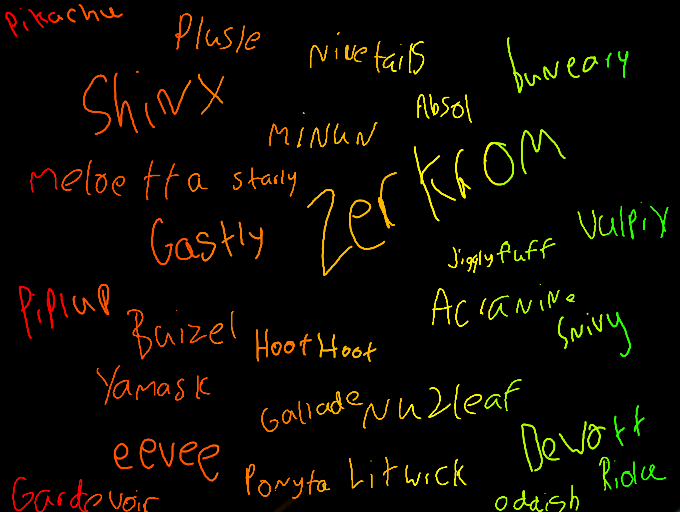 Pikachu
Plusle
Ninetails
buneary
Shinx
Absol
Minun
Meloetta
starly
Zerkrom
Gastly
Vulpix
Jigglyfuff
Piplup
Buizel
HootHoot
Acranine
Snivy
Yamask
Gallade
Nuzleaf
eevee
Dewott
Ponyta
Litwick
Gardevoir
oddish